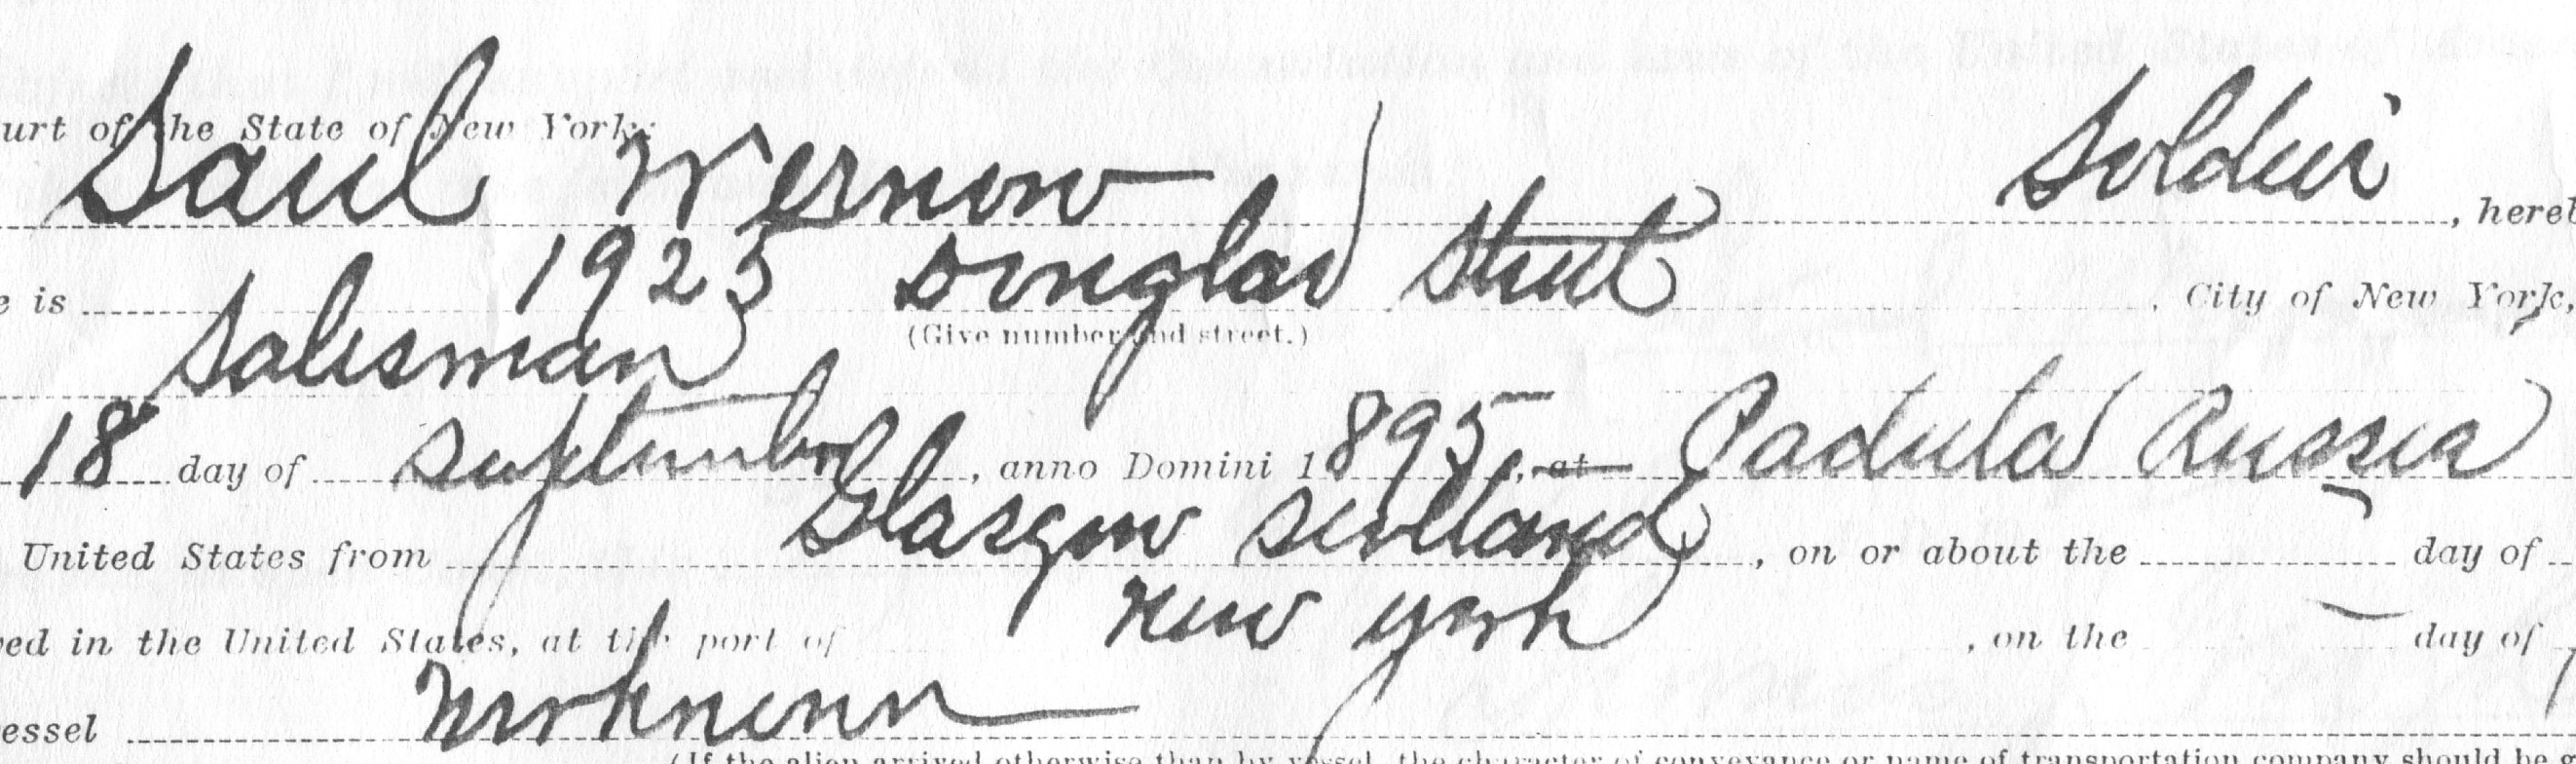 urt of the State of New York:
Saul Wernow Soldier, hereb
e is 1923 Douglas Street, City of New York,
(Give number and street.)
Salesman
18 day of September, anno Domini 1895, at Russia
United States from Glasgow Scotland, on or about the day of
ved in the United States, at the port of New York, on the day of
essel
(If the alien arrived otherwise than by vessel, the character of conveyance or name of transportation company should be g